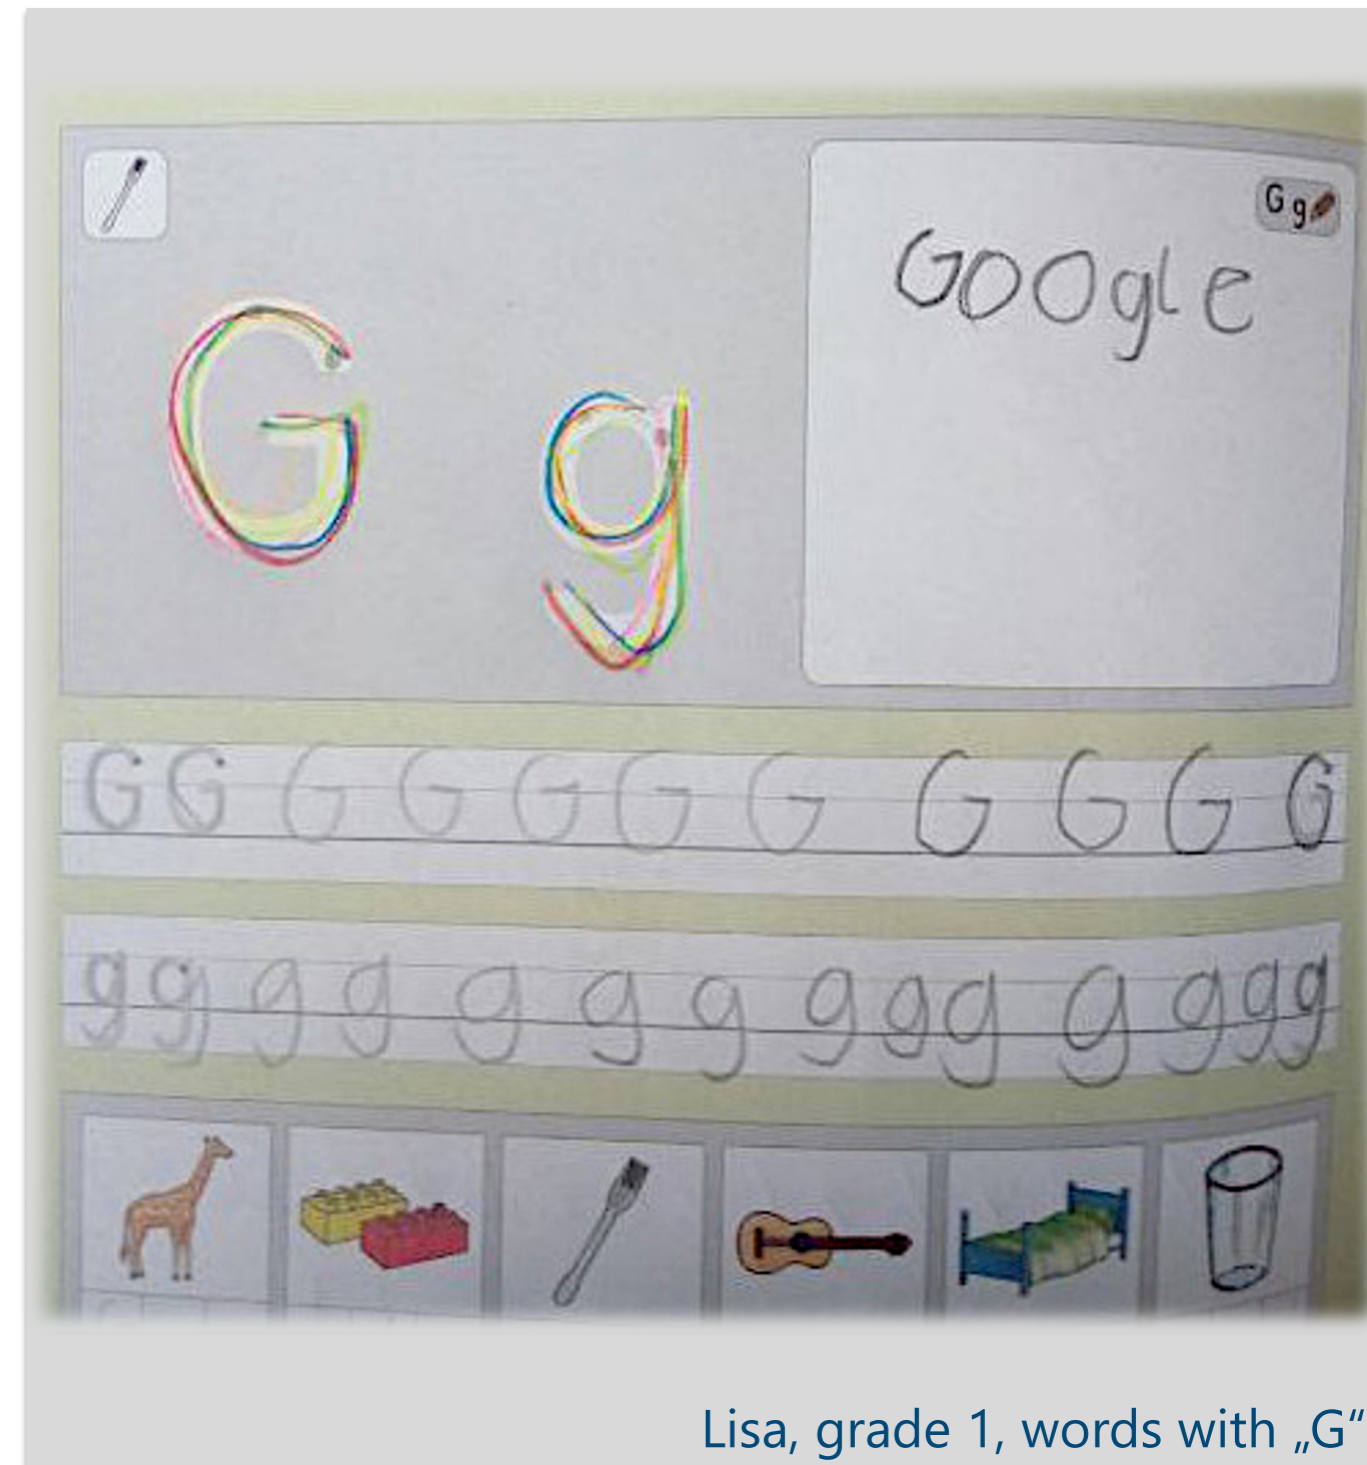 G g
Google
G g
G G G G G G G G G G G
g g g g g g g g g g g g g g
Lisa, grade 1, words with „G“